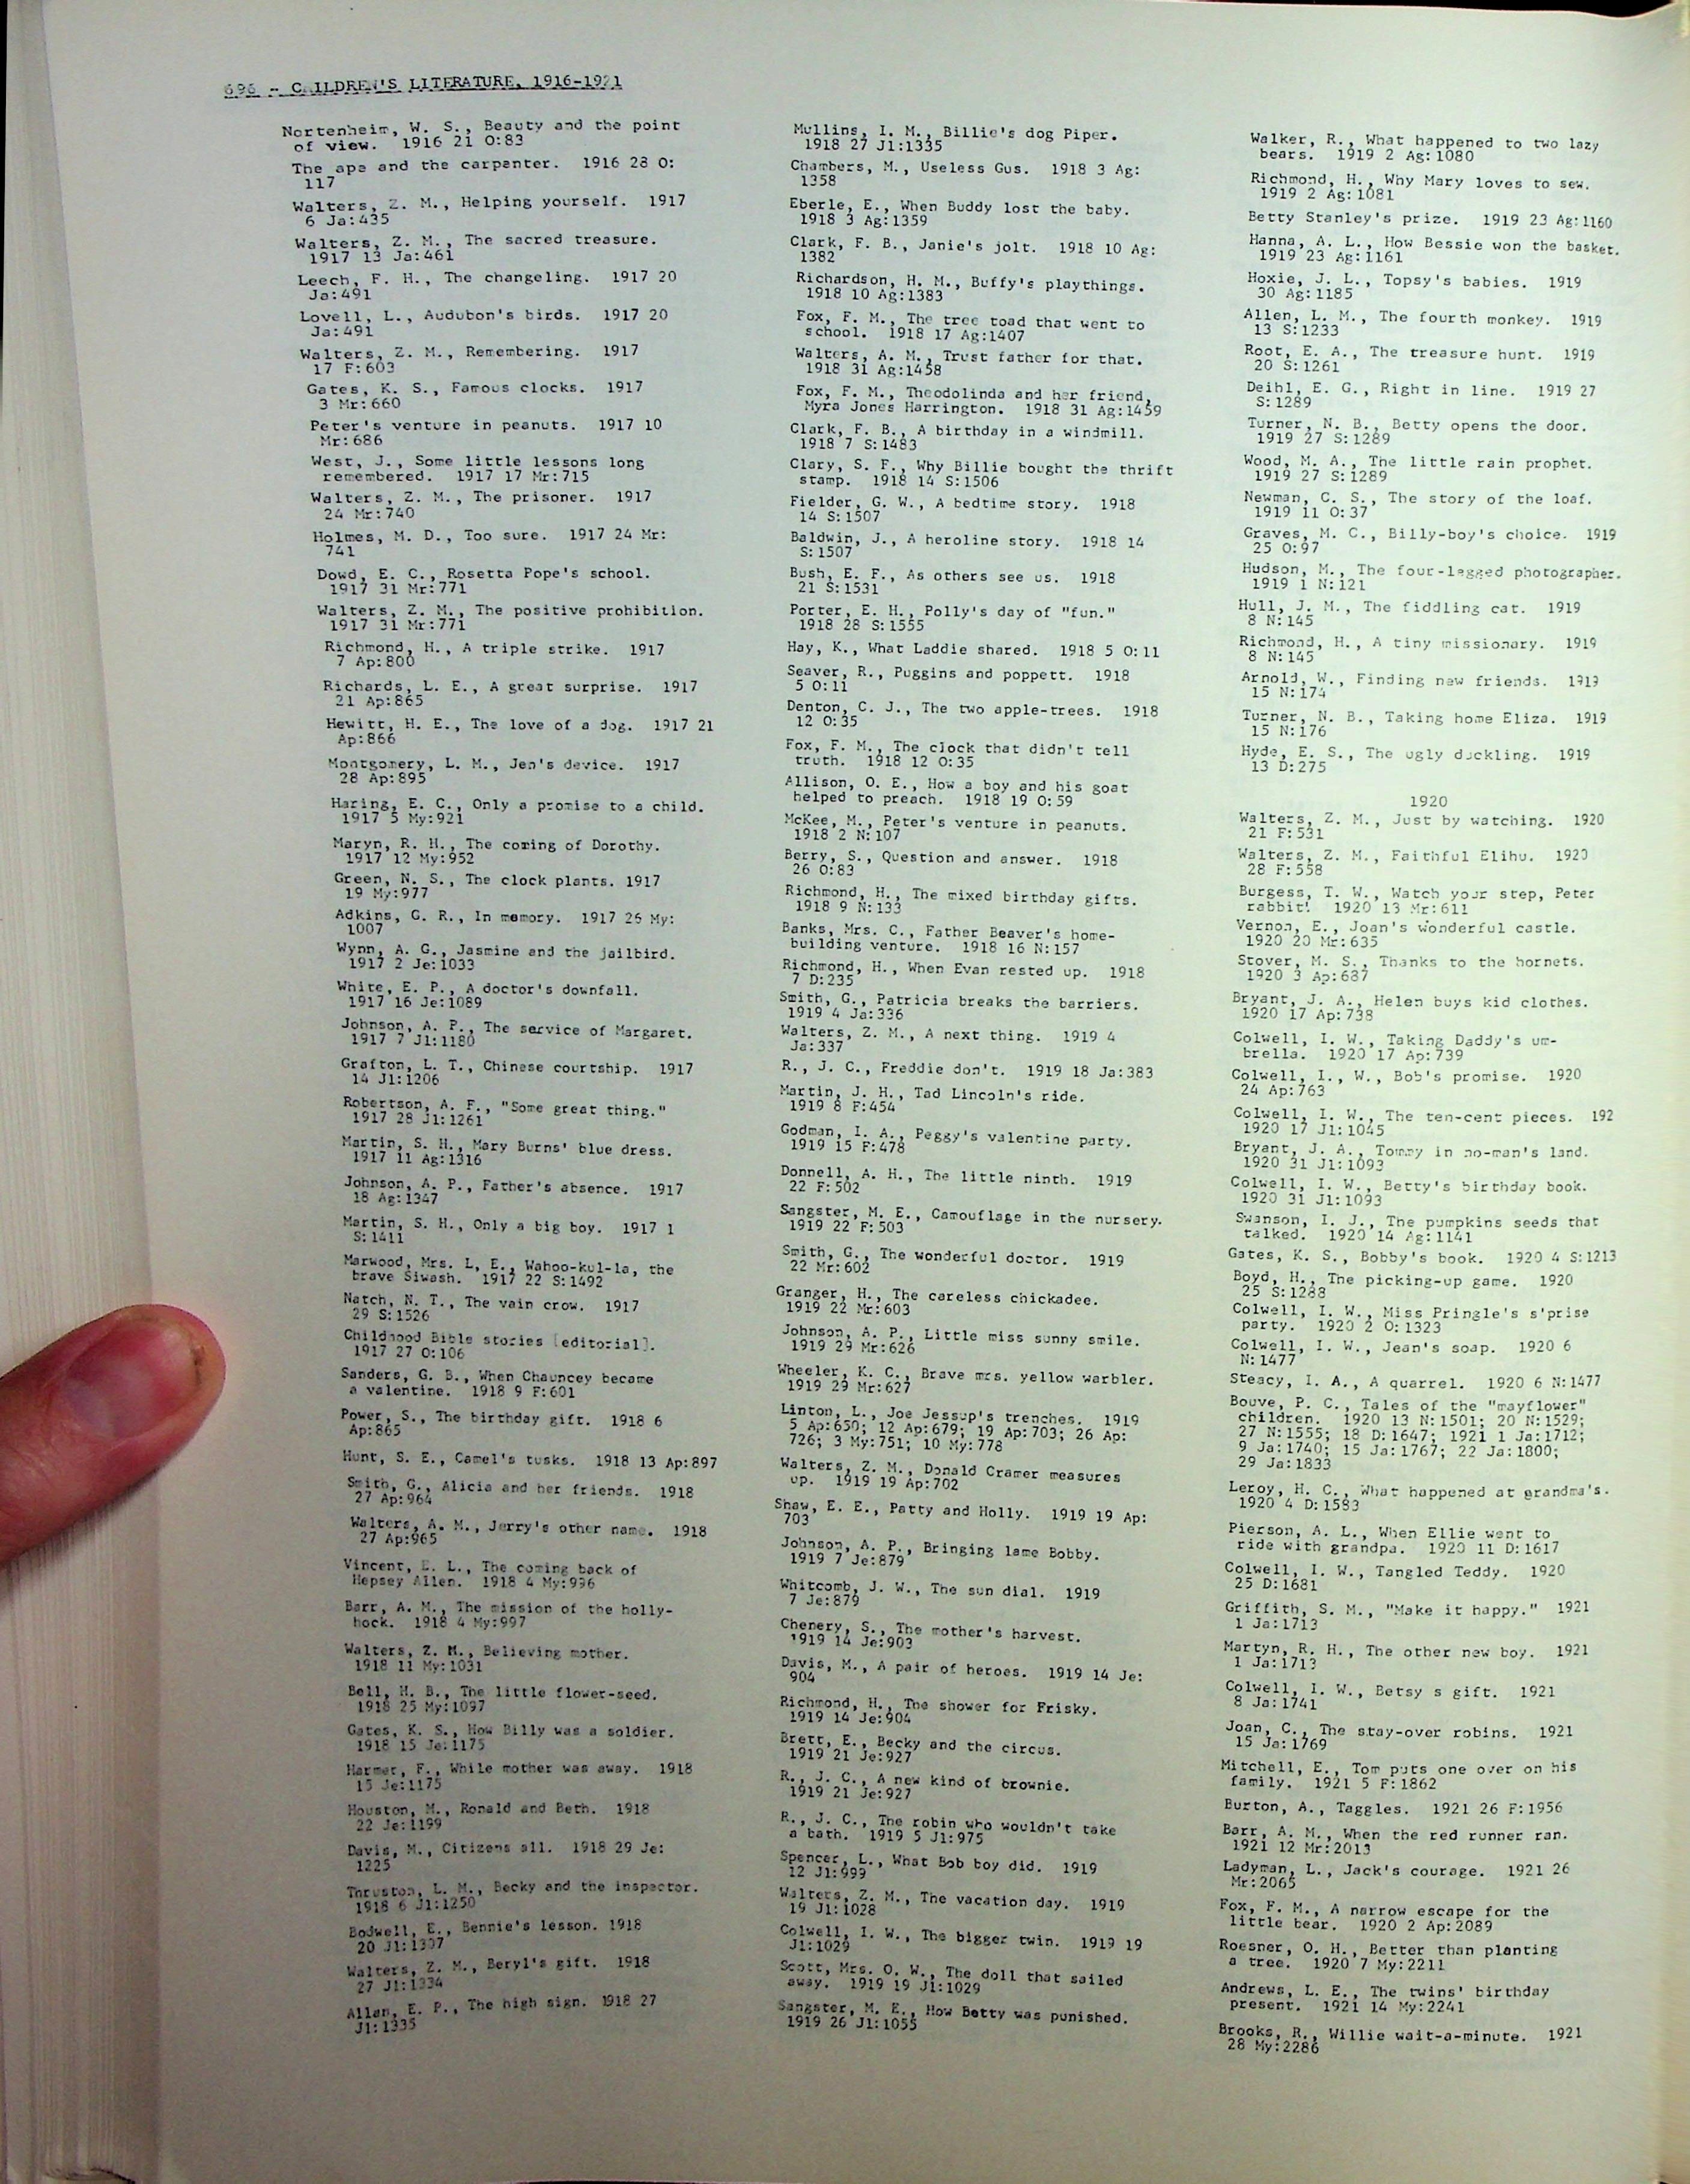 696 - CHILDREN'S LITERATURE, 1916-1921
Nortenheim, W. S., Beauty and the point
of view. 1916 21 O:83
The ape and the carpenter. 1916 28 O:
117
Walters, Z. M., Helping yourself. 1917
6 Ja:435
Walters, Z. M., The sacred treasure.
1917 13 Ja:461
Leech, F. H., The changeling. 1917 20
Ja:491
Lovell, L., Audubon's birds. 1917 20
Ja:491
Walters, Z. M., Remembering. 1917
17 F:603
Gates, K. S., Famous clocks. 1917
3 Mr:660
Peter's venture in peanuts. 1917 10
Mr:686
West, J., Some little lessons long
remembered. 1917 17 Mr:715
Walters, Z. M., The prisoner. 1917
24 Mr:740
Holmes, M. D., Too sure. 1917 24 Mr:
741
Dowd, E. C., Rosetta Pope's school.
1917 31 Mr:771
Walters, Z. M., The positive prohibition.
1917 31 Mr:771
Richmond, H., A triple strike. 1917
7 Ap:800
Richards, L. E., A great surprise. 1917
21 Ap:865
Hewitt, H. E., The love of a dog. 1917 21
Ap:866
Montgomery, L. M., Jen's device. 1917
28 Ap:895
Haring, E. C., Only a promise to a child.
1917 5 My:921
Maryn, R. H., The coming of Dorothy.
1917 12 My:952
Green, N. S., The clock plants. 1917
19 My:977
Adkins, G. R., In memory. 1917 26 My:
1007
Wynn, A. G., Jasmine and the jailbird.
1917 2 Je:1033
White, E. P., A doctor's downfall.
1917 16 Je:1089
Johnson, A. P., The service of Margaret.
1917 7 Jl:1180
Grafton, L. T., Chinese courtship. 1917
14 Jl:1206
Robertson, A. F., "Some great thing."
1917 28 Jl:1261
Martin, S. H., Mary Burns' blue dress.
1917 11 Ag:1316
Johnson, A. P., Father's absence. 1917
18 Ag:1347
Martin, S. H., Only a big boy. 1917 1
S:1411
Marwood, Mrs. L, E., Wahoo-kul-la, the
brave Siwash. 1917 22 S:1492
Natch, N. T., The vain crow. 1917
29 S:1526
Childhood Bible stories [editorial].
1917 27 O:106
Sanders, G. B., When Chauncey became
a valentine. 1918 9 F:601
Power, S., The birthday gift. 1918 6
Ap:865
Hunt, S. E., Camel's tusks. 1918 13 Ap:897
Smith, G., Alicia and her friends. 1918
27 Ap:964
Walters, A. M., Jerry's other name. 1918
27 Ap:965
Vincent, E. L., The coming back of
Hepsey Allen. 1918 4 My:996
Barr, A. M., The mission of the holly-
hock. 1918 4 My:997
Walters, Z. M., Believing mother.
1918 11 My:1031
Bell, H. B., The little flower-seed.
1918 25 My:1097
Gates, K. S., How Billy was a soldier.
1918 15 Je:1175
Harmer, F., While mother was away. 1918
15 Je:1175
Houston, M., Ronald and Beth. 1918
22 Je:1199
Davis, M., Citizens all. 1918 29 Je:
1225
Thruston, L. M., Becky and the inspector.
1918 6 Jl:1250
Bodwell, E., Bennie's lesson. 1918
20 Jl:1307
Walters, Z. M., Beryl's gift. 1918
27 Jl:1334
Allan, E. P., The high sign. 1918 27
Jl:1335
Mullins, I. M., Billie's dog Piper.
1918 27 Jl:1335
Chambers, M., Useless Gus. 1918 3 Ag:
1358
Eberle, E., When Buddy lost the baby.
1918 3 Ag:1359
Clark, F. B., Janie's jolt. 1918 10 Ag:
1382
Richardson, H. M., Buffy's playthings.
1918 10 Ag:1383
Fox, F. M., The tree toad that went to
school. 1918 17 Ag:1407
Walters, A. M., Trust father for that.
1918 31 Ag:1458
Fox, F. M., Theodolinda and her friend,
Myra Jones Harrington. 1918 31 Ag:1459
Clark, F. B., A birthday in a windmill.
1918 7 S:1483
Clary, S. F., Why Billie bought the thrift
stamp. 1918 14 S:1506
Fielder, G. W., A bedtime story. 1918
14 S:1507
Baldwin, J., A heroline story. 1918 14
S:1507
Bush, E. F., As others see us. 1918
21 S:1531
Porter, E. H., Polly's day of "fun."
1918 28 S:1555
Hay, K., What Laddie shared. 1918 5 O:11
Seaver, R., Puggins and poppett. 1918
5 O:11
Denton, C. J., The two apple-trees. 1918
12 O:35
Fox, F. M., The clock that didn't tell
truth. 1918 12 O:35
Allison, O. E., How a boy and his goat
helped to preach. 1918 19 O:59
McKee, M., Peter's venture in peanuts.
1918 2 N:107
Berry, S., Question and answer. 1918
26 O:83
Richmond, H., The mixed birthday gifts.
1918 9 N:133
Banks, Mrs. C., Father Beaver's home-
building venture. 1918 16 N:157
Richmond, H., When Evan rested up. 1918
7 D:235
Smith, G., Patricia breaks the barriers.
1919 4 Ja:336
Walters, Z. M., A next thing. 1919 4
Ja:337
R., J. C., Freddie don't. 1919 18 Ja:383
Martin, J. H., Tad Lincoln's ride.
1919 8 F:454
Godman, I. A., Peggy's valentine party.
1919 15 F:478
Donnell, A. H., The little ninth. 1919
22 F:502
Sangster, M. E., Camouflage in the nursery.
1919 22 F:503
Smith, G., The wonderful doctor. 1919
22 Mr:602
Granger, H., The careless chickadee.
1919 22 Mr:603
Johnson, A. P., Little miss sunny smile.
1919 29 Mr:626
Wheeler, K. C., Brave mrs. yellow warbler.
1919 29 Mr:627
Linton, L., Joe Jessup's trenches. 1919
5 Ap:650; 12 Ap:679; 19 Ap:703; 26 Ap:
726; 3 My:751; 10 My:778
Walters, Z. M., Donald Cramer measures
up. 1919 19 Ap:702
Shaw, E. E., Patty and Holly. 1919 19 Ap:
703
Johnson, A. P., Bringing lame Bobby.
1919 7 Je:879
Whitcomb, J. W., The sun dial. 1919
7 Je:879
Chenery, S., The mother's harvest.
1919 14 Je:903
Davis, M., A pair of heroes. 1919 14 Je:
904
Richmond, H., The shower for Frisky.
1919 14 Je:904
Brett, E., Becky and the circus.
1919 21 Je:927
R., J. C., A new kind of brownie.
1919 21 Je:927
R., J. C., The robin who wouldn't take
a bath. 1919 5 Jl:975
Spencer, L., What Bob boy did. 1919
12 Jl:999
Walters, Z. M., The vacation day. 1919
19 Jl:1028
Colwell, I. W., The bigger twin. 1919 19
Jl:1029
Scott, Mrs. O. W., The doll that sailed
away. 1919 19 Jl:1029
Sangster, M. E., How Betty was punished.
1919 26 Jl:1055
Walker, R., What happened to two lazy
bears. 1919 2 Ag:1080
Richmond, H., Why Mary loves to sew.
1919 2 Ag:1081
Betty Stanley's prize. 1919 23 Ag:1160
Hanna, A. L., How Bessie won the basket.
1919 23 Ag:1161
Hoxie, J. L., Topsy's babies. 1919
30 Ag:1185
Allen, L. M., The fourth monkey. 1919
13 S:1233
Root, E. A., The treasure hunt. 1919
20 S:1261
Deihl, E. G., Right in line. 1919 27
S:1289
Turner, N. B., Betty opens the door.
1919 27 S:1289
Wood, M. A., The little rain prophet.
1919 27 S:1289
Newman, C. S., The story of the loaf.
1919 11 O:37
Graves, M. C., Billy-boy's choice. 1919
25 O:97
Hudson, M., The four-legged photographer.
1919 1 N:121
Hull, J. M., The fiddling cat. 1919
8 N:145
Richmond, H., A tiny missionary. 1919
8 N:145
Arnold, W., Finding new friends. 1919
15 N:174
Turner, N. B., Taking home Eliza. 1919
15 N:176
Hyde, E. S., The ugly duckling. 1919
13 D:275
1920
Walters, Z. M., Just by watching. 1920
21 F:531
Walters, Z. M., Faithful Elihu. 1920
28 F:558
Burgess, T. W., Watch your step, Peter
rabbit! 1920 13 Mr:611
Vernon, E., Joan's wonderful castle.
1920 20 Mr:635
Stover, M. S., Thanks to the hornets.
1920 3 Ap:687
Bryant, J. A., Helen buys kid clothes.
1920 17 Ap:738
Colwell, I. W., Taking Daddy's um-
brella. 1920 17 Ap:739
Colwell, I., W., Bob's promise. 1920
24 Ap:763
Colwell, I. W., The ten-cent pieces. 192
1920 17 Jl:1045
Bryant, J. A., Tommy in no-man's land.
1920 31 Jl:1093
Colwell, I. W., Betty's birthday book.
1920 31 Jl:1093
Swanson, I. J., The pumpkins seeds that
talked. 1920 14 Ag:1141
Gates, K. S., Bobby's book. 1920 4 S:1213
Boyd, H., The picking-up game. 1920
25 S:1288
Colwell, I. W., Miss Pringle's s'prise
party. 1920 2 O:1323
Colwell, I. W., Jean's soap. 1920 6
N:1477
Steacy, I. A., A quarrel. 1920 6 N:1477
Bouve, P. C., Tales of the "mayflower"
children. 1920 13 N:1501; 20 N:1529;
27 N:1555; 18 D:1647; 1921 1 Ja:1712;
9 Ja:1740; 15 Ja:1767; 22 Ja:1800;
29 Ja:1833
Leroy, H. C., What happened at grandma's.
1920 4 D:1583
Pierson, A. L., When Ellie went to
ride with grandpa. 1920 11 D:1617
Colwell, I. W., Tangled Teddy. 1920
25 D:1681
Griffith, S. M., "Make it happy." 1921
1 Ja:1713
Martyn, R. H., The other new boy. 1921
1 Ja:1713
Colwell, I. W., Betsy s gift. 1921
8 Ja:1741
Joan, C., The stay-over robins. 1921
15 Ja:1769
Mitchell, E., Tom puts one over on his
family. 1921 5 F:1862
Burton, A., Taggles. 1921 26 F:1956
Barr, A. M., When the red runner ran.
1921 12 Mr:2013
Ladyman, L., Jack's courage. 1921 26
Mr:2065
Fox, F. M., A narrow escape for the
little bear. 1920 2 Ap:2089
Roesner, O. H., Better than planting
a tree. 1920 7 My:2211
Andrews, L. E., The twins' birthday
present. 1921 14 My:2241
Brooks, R., Willie wait-a-minute. 1921
28 My:2286